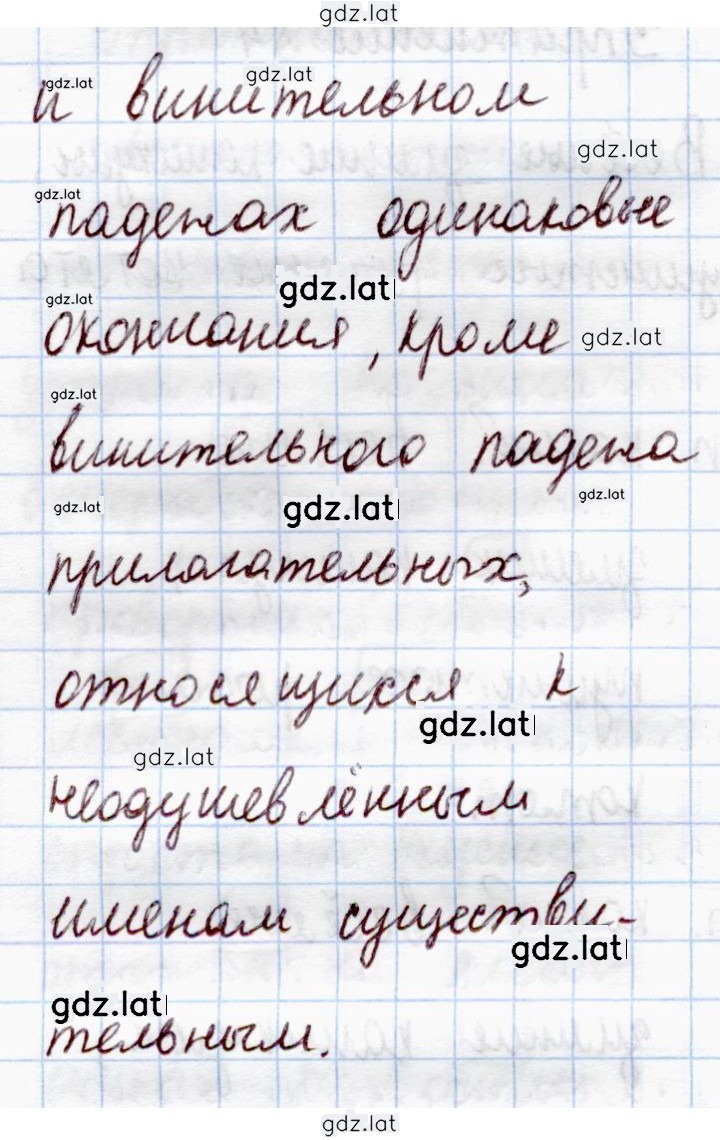 gdz.lat
gdz.lat gdz.lat
и винительном
gdz.lat
gdz.lat
падежах одинаковые
gdz.lat
gdz.lat
окончания, кроме gdz.lat
gdz.lat
винительного падежа
gdz.lat gdz.lat gdz.lat
прилагательных,
относящихся к
gdz.lat
gdz.lat
неодушевлённым
именам существи-
gdz.lat
gdz.lat
тельным.
gdz.lat